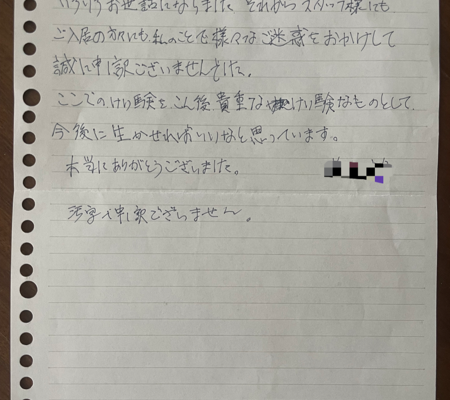 いろいろお世話になりました。それからスタッフ様にも
ご入居の方にも私のことで様々なご迷惑をおかけして
誠に申し訳ございませんでした。
ここでのけい験を、こん後貴重なけい験なものとして、
今後に生かせればいいなと思っています。
本当にありがとうございました。
汚字で申し訳ございません。